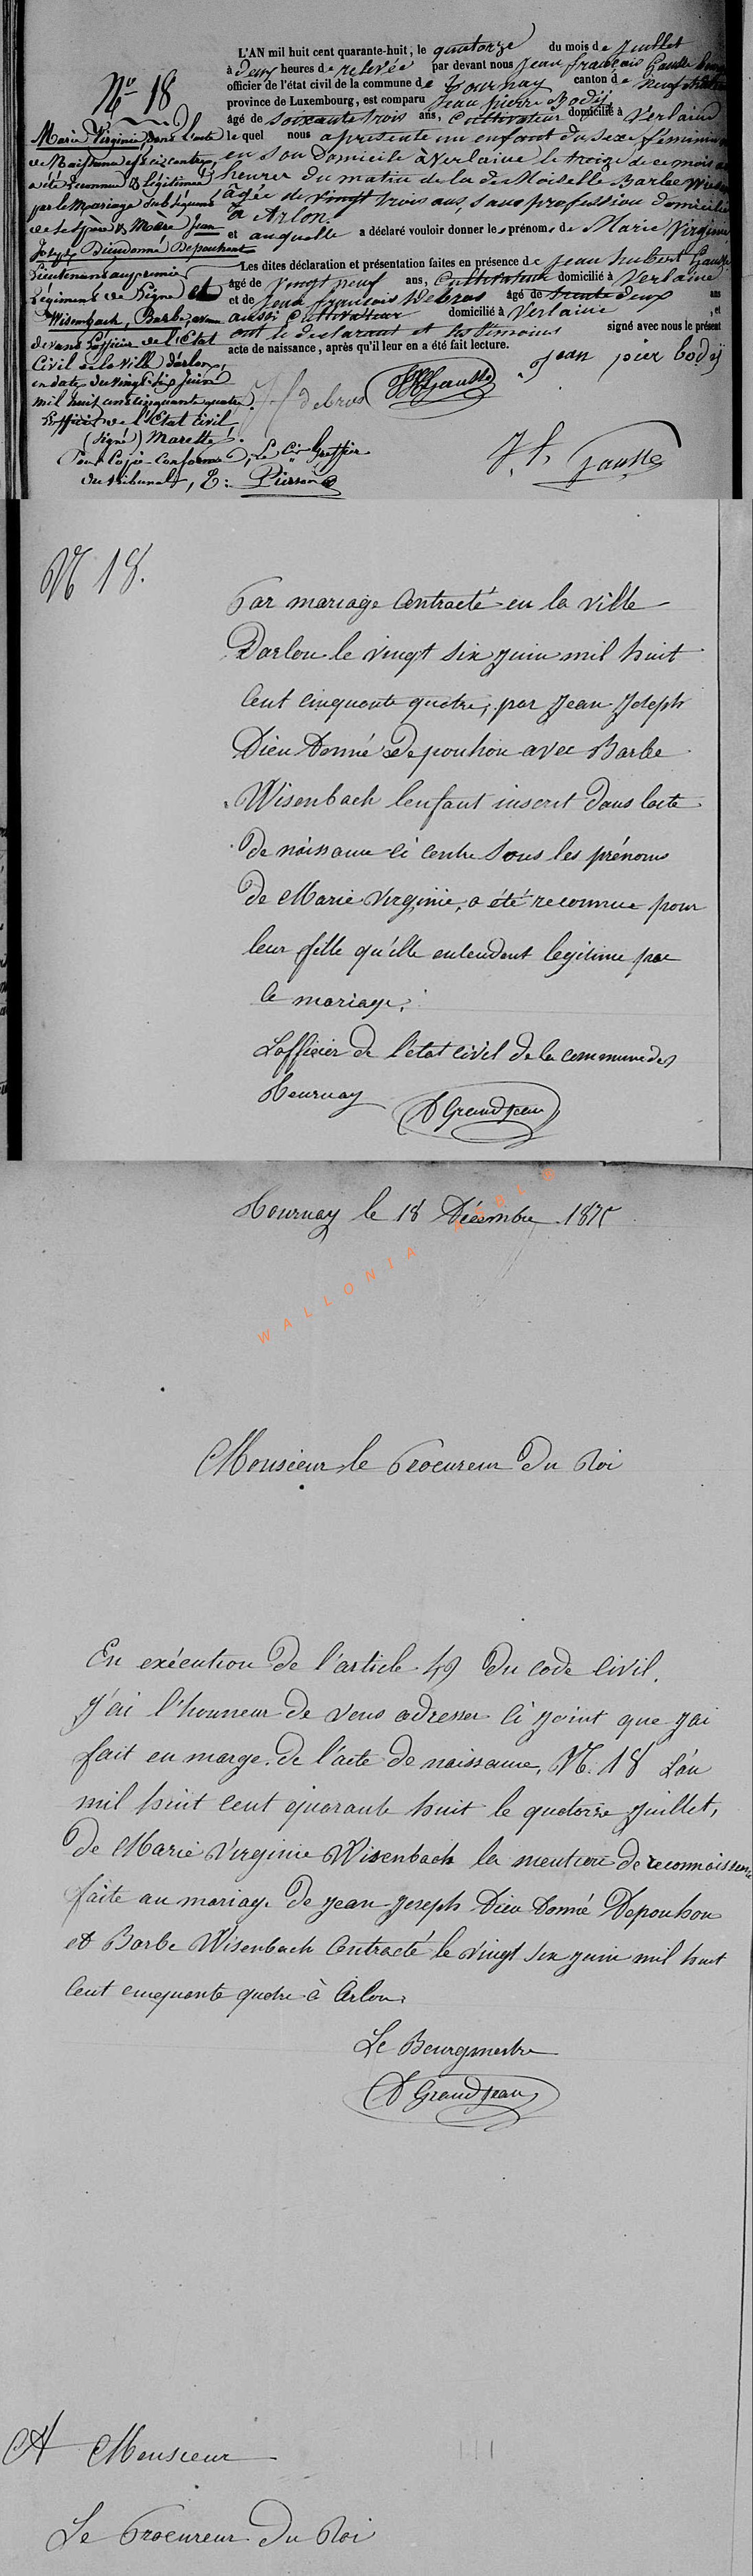 N° 18
L'AN mil huit cent quarante-huit, le quatorze du mois de Juillet
à deux heures de relevée par devant nous Jean françois Gausse
officier de l'état civil de la commune de Tournay canton de
province de Luxembourg, est comparu Jean pierre Bodÿ
âgé de soixante trois ans, Cultivateur domicilié à Verlaine
le quel nous a présenté un enfant du Sexe féminin
en son Domicile à Verlaine le treize de ce mois
heures du matin de la demoiselle Barbe
âgée de vingt trois ans, sans profession domiciliée
à Arlon.
et auquelle a déclaré vouloir donner les prénoms de Marie Virginie
Les dites déclaration et présentation faites en présence de Jean hubert Gausse
âgé de vingt neuf ans, Cultivateur domicilié à Verlaine
et de Jean francois Debras âgé de trente deux ans
aussi Cultivateur domicilié à Verlaine , et
ont le déclarant et les témoins signé avec nous le présent
acte de naissance, après qu'il leur en a été fait lecture.
Jean pier bodÿ
J f debras
JHGausse
J. f. Gausse
Marie Virginie, dans l'acte
de Naissance ci-contre,
a été reconnue & légitimée
par le Mariage Subséquent
de ses père & Mère Jean
Joseph Dieudonné Depouhont
Lieutenant au premier
Régiment de Ligne et
Wisembach, Barbe, par
devant l'officier de l'Etat
Civil de la Ville d'arlon,
en date du vingt-six juin
mil huit cent cinquante quatre.
L'officier de l'Etat Civil
(signé) Marette.
Pour Copie Conforme, Le Cis Greffier
du tribunal, E: Pierson
N 18.
Par mariage Contracté en la ville
Darlon le vingt six juin mil huit
Cent cinquante quatre, par Jean Joseph
Dieu Donné Depouhon avec Barbe
Wisenbach lenfant inscrit dans lacte
de naissance ci contre sous les prénoms
de Marie Virginie, a été reconnue pour
leur fille qu'elle entendent legitime par
le mariage.
Lofficier de l'état civil de la commune de
Tournay
D Grandjean
Tournay le 18 Décembre 1875
WALLONIA ASBL ©
Monsieur le Procureur Du Roi
En exécution de l'article 49 du code Civil.
J'ai l'honneur de vous adresser Ci joint que jai
fait en marge de l'acte de naissance, N. 18 L'an
mil huit cent quarante huit le quatorze Juillet,
De Marie Virginie Wisenbach la mention de reconnaissance
faite au mariage de Jean Joseph Dieu Donné Depouhon
et Barbe Wisenbach Contracté le vingt six juin mil huit
Cent cinquante quatre à Arlon.
Le Bourgmestre
D Grandjean
A Monsieur
Le Procureur Du Roi